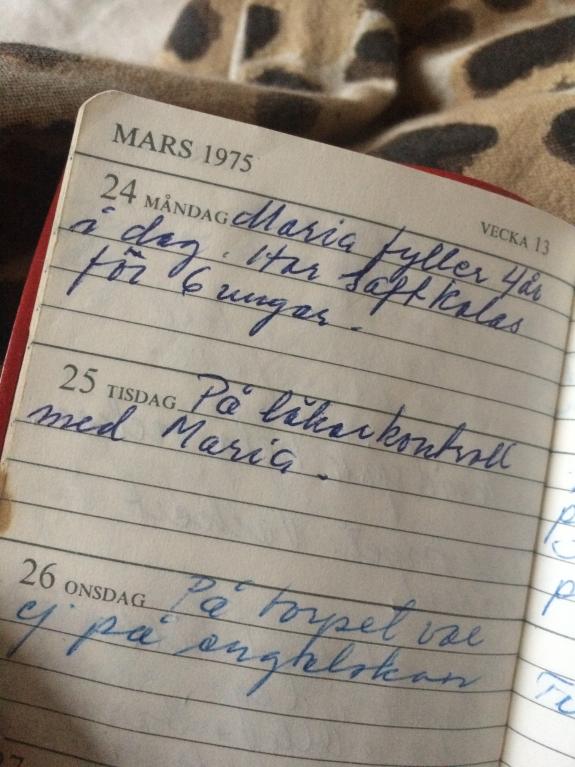 MARS 1975
VECKA 13
24 MÅNDAG Maria fyller 4 år
i dag. Har saftkalas
för 6 ungar.
25 TISDAG På läkarkontroll
med Maria.
26 ONSDAG På torpet var
ej på engelskan